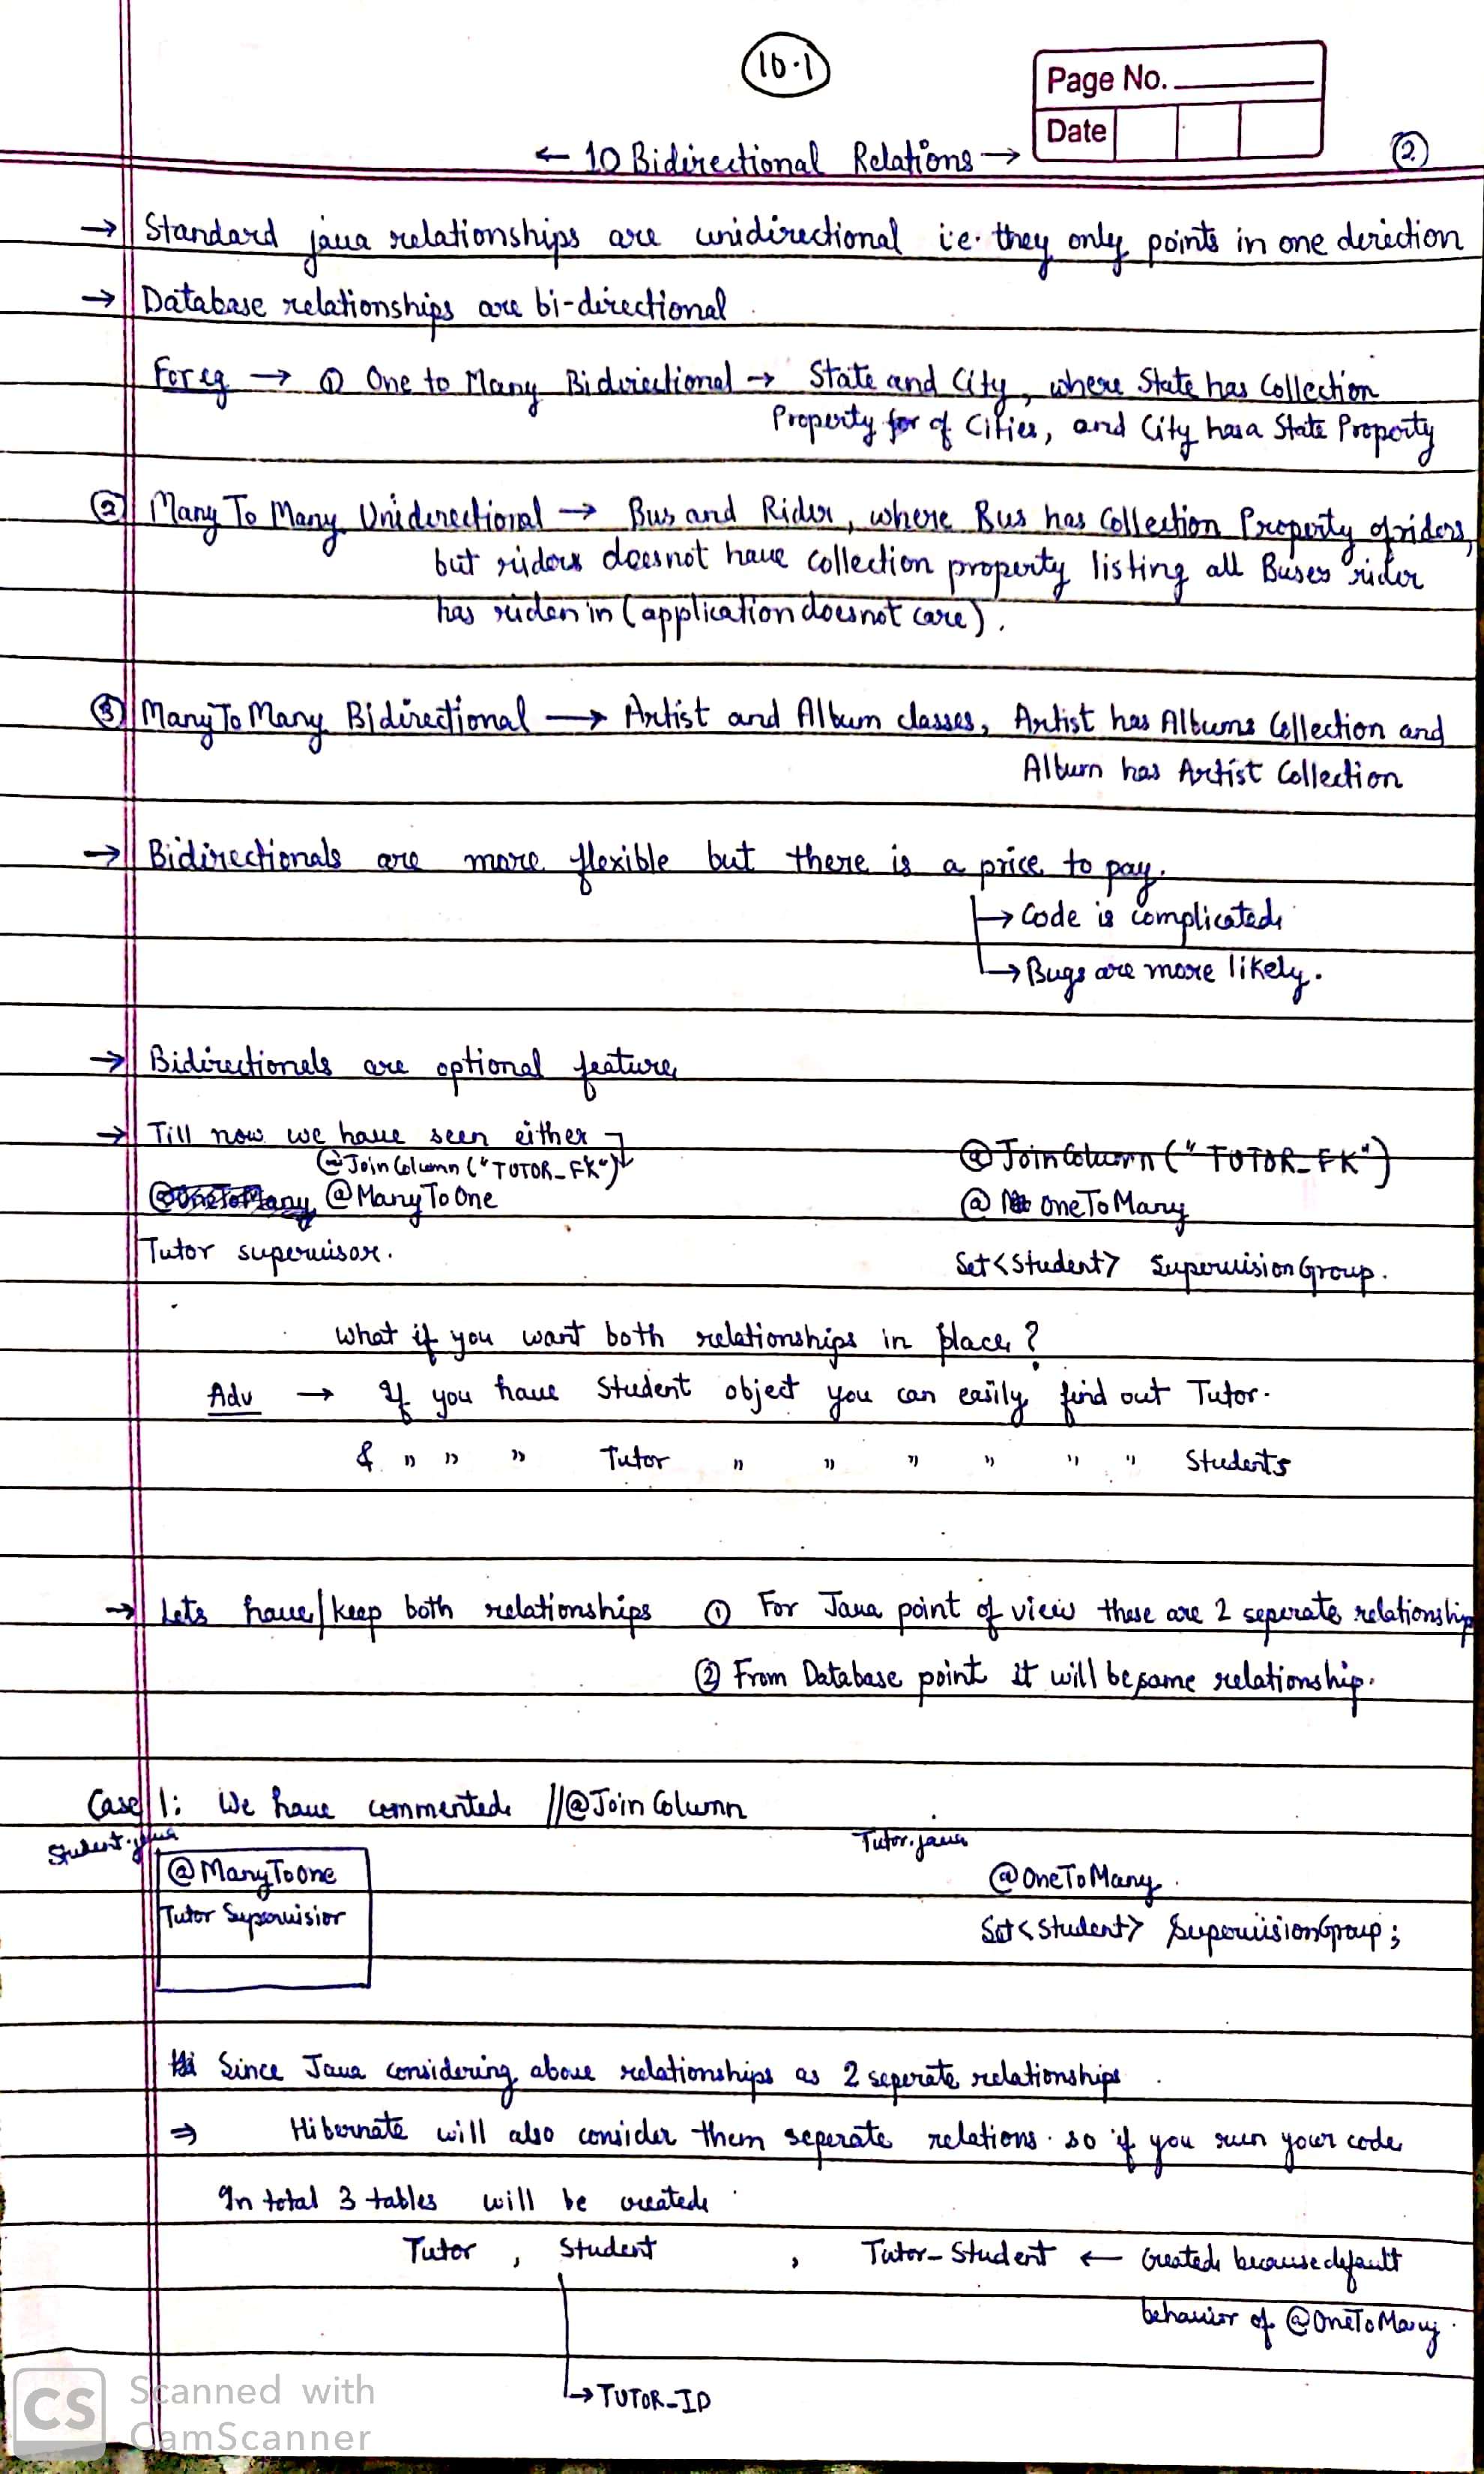 10.1
Page No.
Date
← 10 Bidirectional Relations →
2
→ Standard java relationships are unidirectional i.e. they only points in one direction
→ Database relationships are bi-directional
For eg → ① One to Many Bidirectional → State and City, where State has Collection
Property for of Cities, and City has a State Property
② Many To Many Unidirectional → Bus and Rider, where Bus has Collection Property of riders,
but riders doesnot have collection property listing all Buses rider
has riden in (application doesnot care).
③ Many To Many Bidirectional → Artist and Album classes, Artist has Albums Collection and
Album has Artist Collection
→ Bidirectionals are more flexible but there is a price to pay.
→ Code is complicated
→ Bugs are more likely.
→ Bidirectionals are optional feature
→ Till now we have seen either
@JoinColumn ("TUTOR_FK")
@JoinColumn ("TUTOR_FK")
@OneToMany @ManyToOne
@ OneToMany
Tutor supervisor.
Set<Student> SupervisionGroup.
What if you want both relationships in place?
Adv → If you have Student object you can easily find out Tutor.
& " " " Tutor " " " " " " Students
→ Lets have/keep both relationships ① For Java point of view these are 2 seperate relationship
② From Database point it will be same relationship.
Case 1: We have commented //@Join Column
Student.java
Tutor.java
@ManyToOne
@OneToMany
Tutor Supervisior
Set<Student> SupervisionGroup;
Since Java considering above relationships as 2 seperate relationships
⇒ Hibernate will also consider them seperate relations. so if you run your code
In total 3 tables will be created
Tutor, Student, Tutor-Student ← Created because default
behavior of @OneToMany.
→ TUTOR-ID
CS
Scanned with
CamScanner